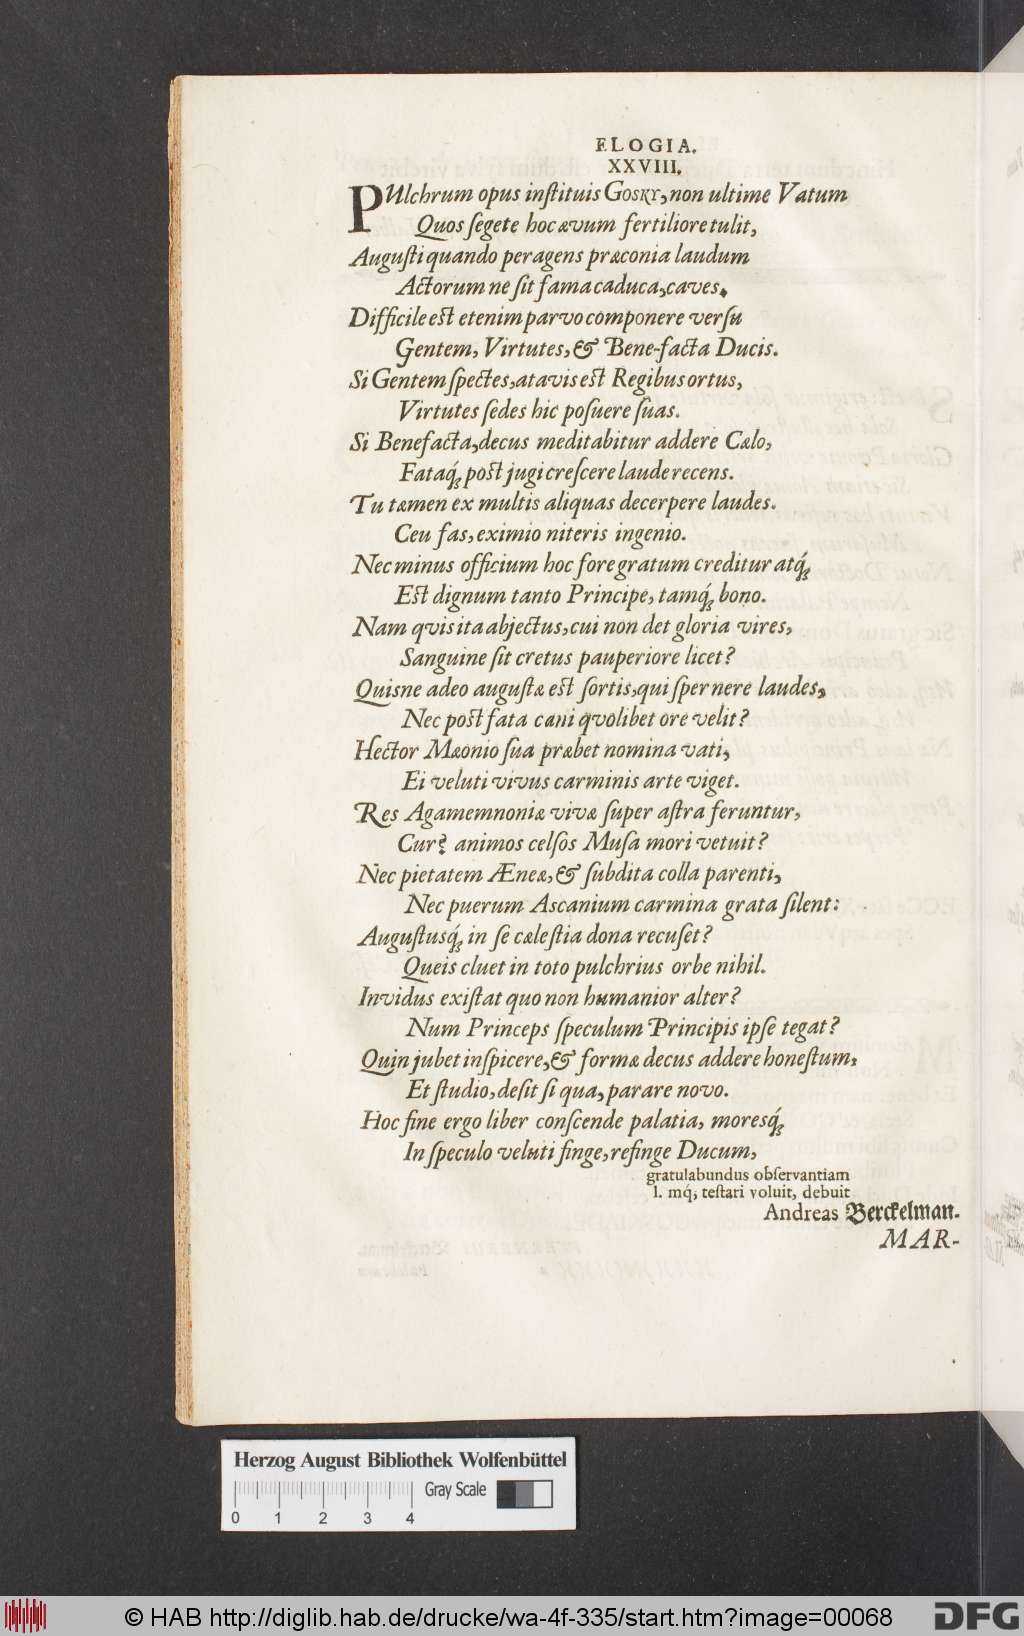 ELOGIA.
XXVIII.
PUlchrum opus inſtituis GOSKY, non ultime Vatum
Quos ſegete hoc ævum fertiliore tulit,
Auguſti quando peragens præconia laudum
Actorum ne ſit fama caduca, caves.
Difficile eſt etenim parvo componere verſu
Gentem, Virtutes, & Bene-facta Ducis.
Si Gentem ſpectes, atavis eſt Regibus ortus,
Virtutes ſedes hic poſuere ſuas.
Si Benefacta, decus meditabitur addere Cælo,
Fataq́; poſt jugi creſcere laude recens.
Tu tamen ex multis aliquas decerpere laudes.
Ceu fas, eximio niteris ingenio.
Nec minus officium hoc fore gratum creditur atq́;
Eſt dignum tanto Principe, tamq́; bono.
Nam qvis ita abjectus, cui non det gloria vires,
Sanguine ſit cretus pauperiore licet?
Quisne adeo auguſtæ eſt ſortis, qui ſpernere laudes,
Nec poſt fata cani qvolibet ore velit?
Hector Mæonio ſua præbet nomina vati,
Ei veluti vivus carminis arte viget.
Res Agamemnoniæ vivæ ſuper aſtra feruntur,
Cur? animos celſos Muſa mori vetuit?
Nec pietatem Æneæ, & ſubdita colla parenti,
Nec puerum Ascanium carmina grata ſilent:
Auguſtusq́; in ſe cæleſtia dona recuſet?
Queis cluet in toto pulchrius orbe nihil.
Invidus exiſtat quo non humanior alter?
Num Princeps ſpeculum Principis ipſe tegat?
Quin jubet inſpicere, & formæ decus addere honeſtum,
Et ſtudio, deſit ſi qua, parare novo.
Hoc fine ergo liber conſcende palatia, moresq́;
In ſpeculo veluti finge, refinge Ducum,
gratulabundus obſervantiam
l. mq́; teſtari voluit, debuit
Andreas Berckelman.
MAR-
Herzog August Bibliothek Wolfenbüttel
Gray Scale
0 1 2 3 4
© HAB http://diglib.hab.de/drucke/wa-4f-335/start.htm?image=00068
DFG